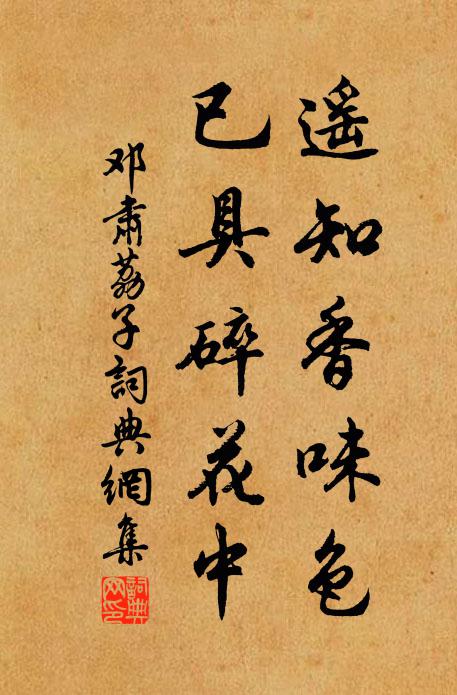 遥知香味色
已具碎花中
邓肃荔子詞典網集
詞典
网印